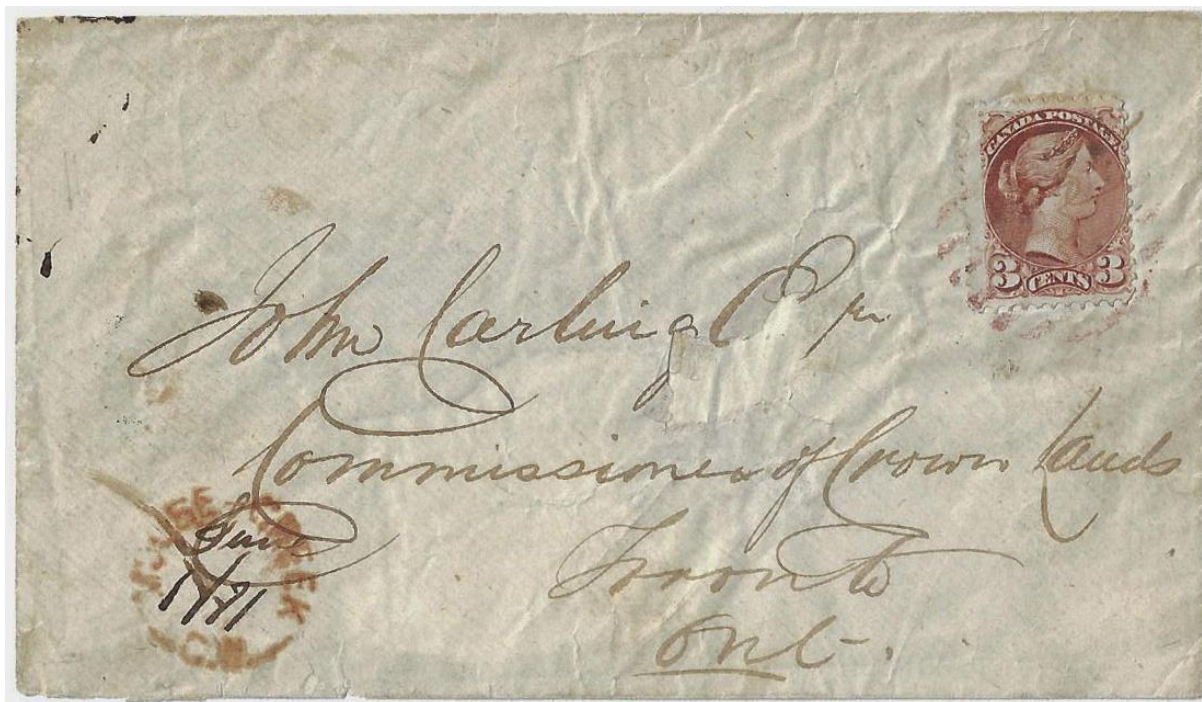 CANADA POSTAGE
3 CENTS 3
John Carling Esqr
Commissioner of Crown Lands
Toronto
Ont.
CREEK
June
1/71
C.W.